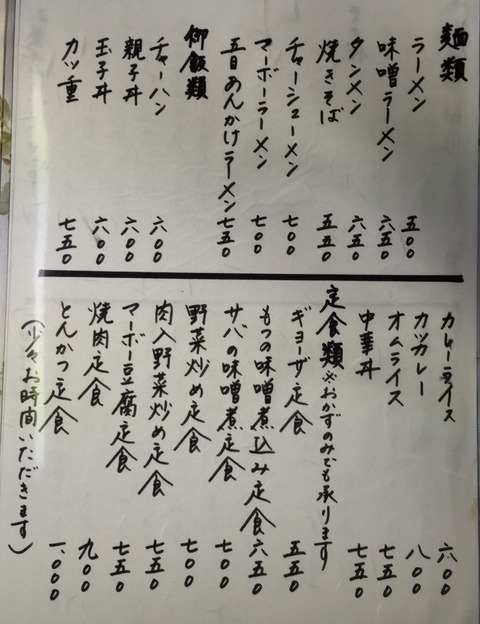 麺類
ラーメン 五〇〇
味噌ラーメン 六五〇
タンメン 六五〇
焼きそば 五五〇
チャーシューメン 七〇〇
マーボーラーメン 七〇〇
五目あんかけラーメン 七五〇
御飯類
チャーハン 六〇〇
親子丼 六〇〇
玉子丼 六〇〇
カツ重 七五〇
カレーライス 六〇〇
カツカレー 八〇〇
オムライス 七五〇
中華丼 七五〇
定食類 ※おかずのみでも承ります
ギョーザ定食 五五〇
もつの味噌煮込み定食 六五〇
サバの味噌煮定食 七〇〇
野菜炒め定食 七〇〇
肉入野菜炒め定食 七五〇
マーボー豆腐定食 七五〇
焼肉定食 九〇〇
とんかつ定食 一、〇〇〇
(少々お時間いただきます)